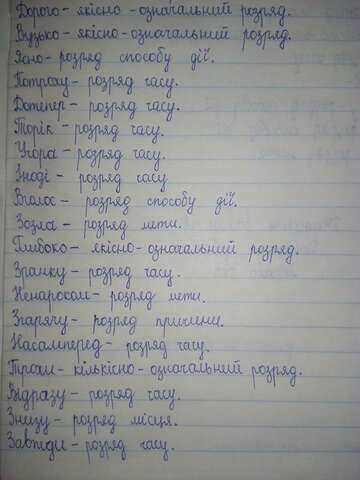 Дорого - якісно - означальний розряд.
Вузько - якісно - означальний розряд.
Ясно - розряд способу дії.
Потроху - розряд часу.
Дотепер - розряд часу.
Торік - розряд часу.
Учора - розряд часу.
Іноді - розряд часу
Вголос - розряд способу дії.
Зозла - розряд мети.
Глибоко - якісно - означальний розряд.
Зранку - розряд часу.
Ненароком - розряд мети.
Зпарячу - розряд причини.
Насамперед - розряд часу.
Трохи - кількісно - означальний розряд.
Відразу - розряд часу.
Знизу - розряд місця.
Завжди - розряд часу.